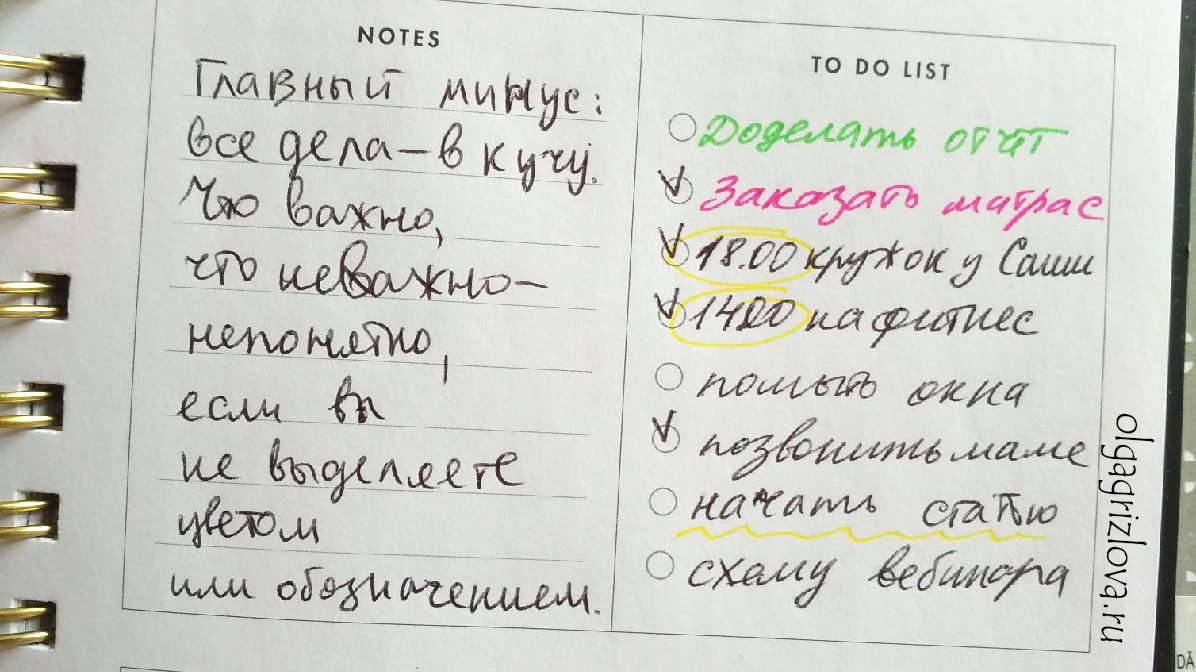 NOTES
Главный минус:
все дела – в кучу.
Что важно,
что неважно –
непонятно,
если вы
не выделяете
цветом
или обозначением.
TO DO LIST
Доделать отчёт
Заказать матрас
18.00 кружок у Саши
14.00 на фитнес
помыть окна
позвонить маме
начать статью
схему вебинара
olgagrizlova.ru
DĀ